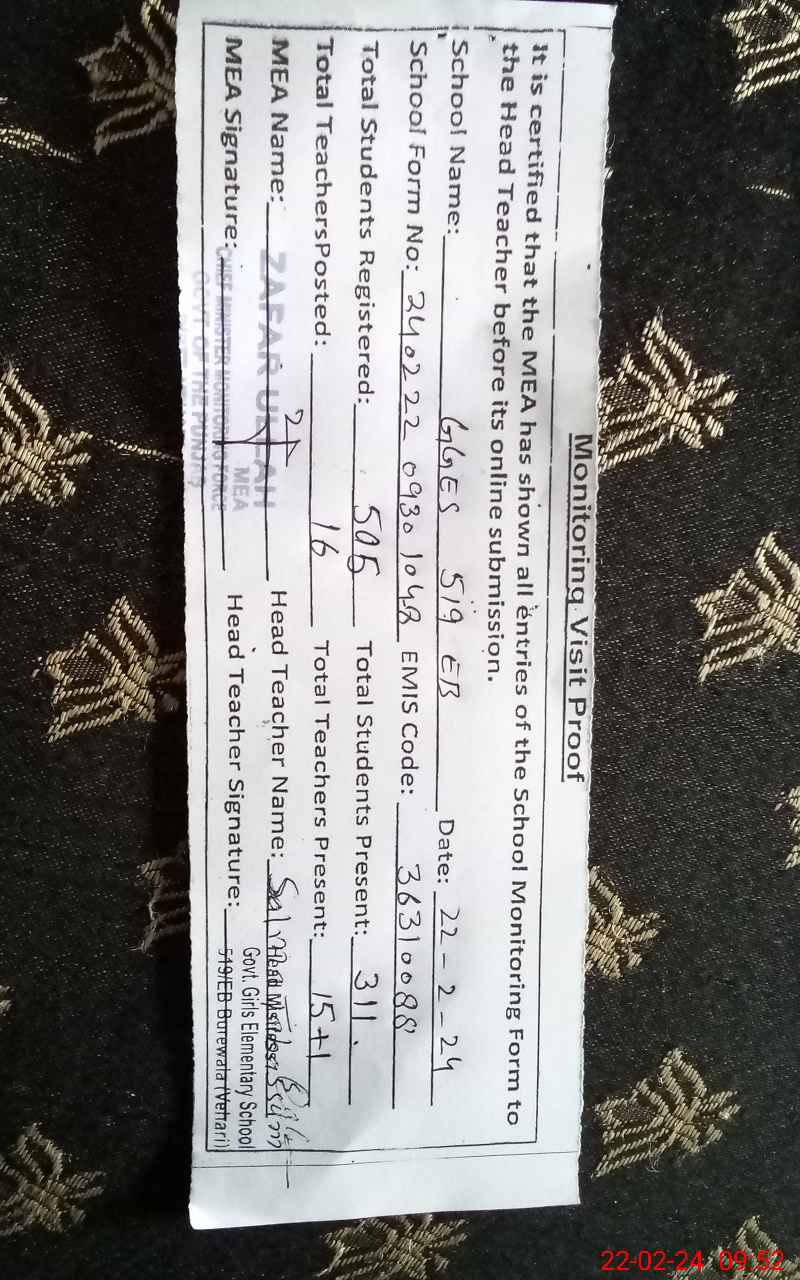 Monitoring Visit Proof
It is certified that the MEA has shown all entries of the School Monitoring Form to
the Head Teacher before its online submission.
School Name: GGES 519 EB Date: 22-2-24
School Form No: 240222 0930 1048 EMIS Code: 36310088
Total Students Registered: 505 Total Students Present: 311.
Total TeachersPosted: 16 Total Teachers Present: 15+1
MEA Name: ZAFAR ULLAH Head Teacher Name:
MEA
MEA Signature: Head Teacher Signature:
CHIEF MINISTER MONITORING FORCE
GOVT OF THE PUNJAB
Head Mistress
Govt. Girls Elementary School
519/EB Burewala (Vehari)
22-02-24 09:52